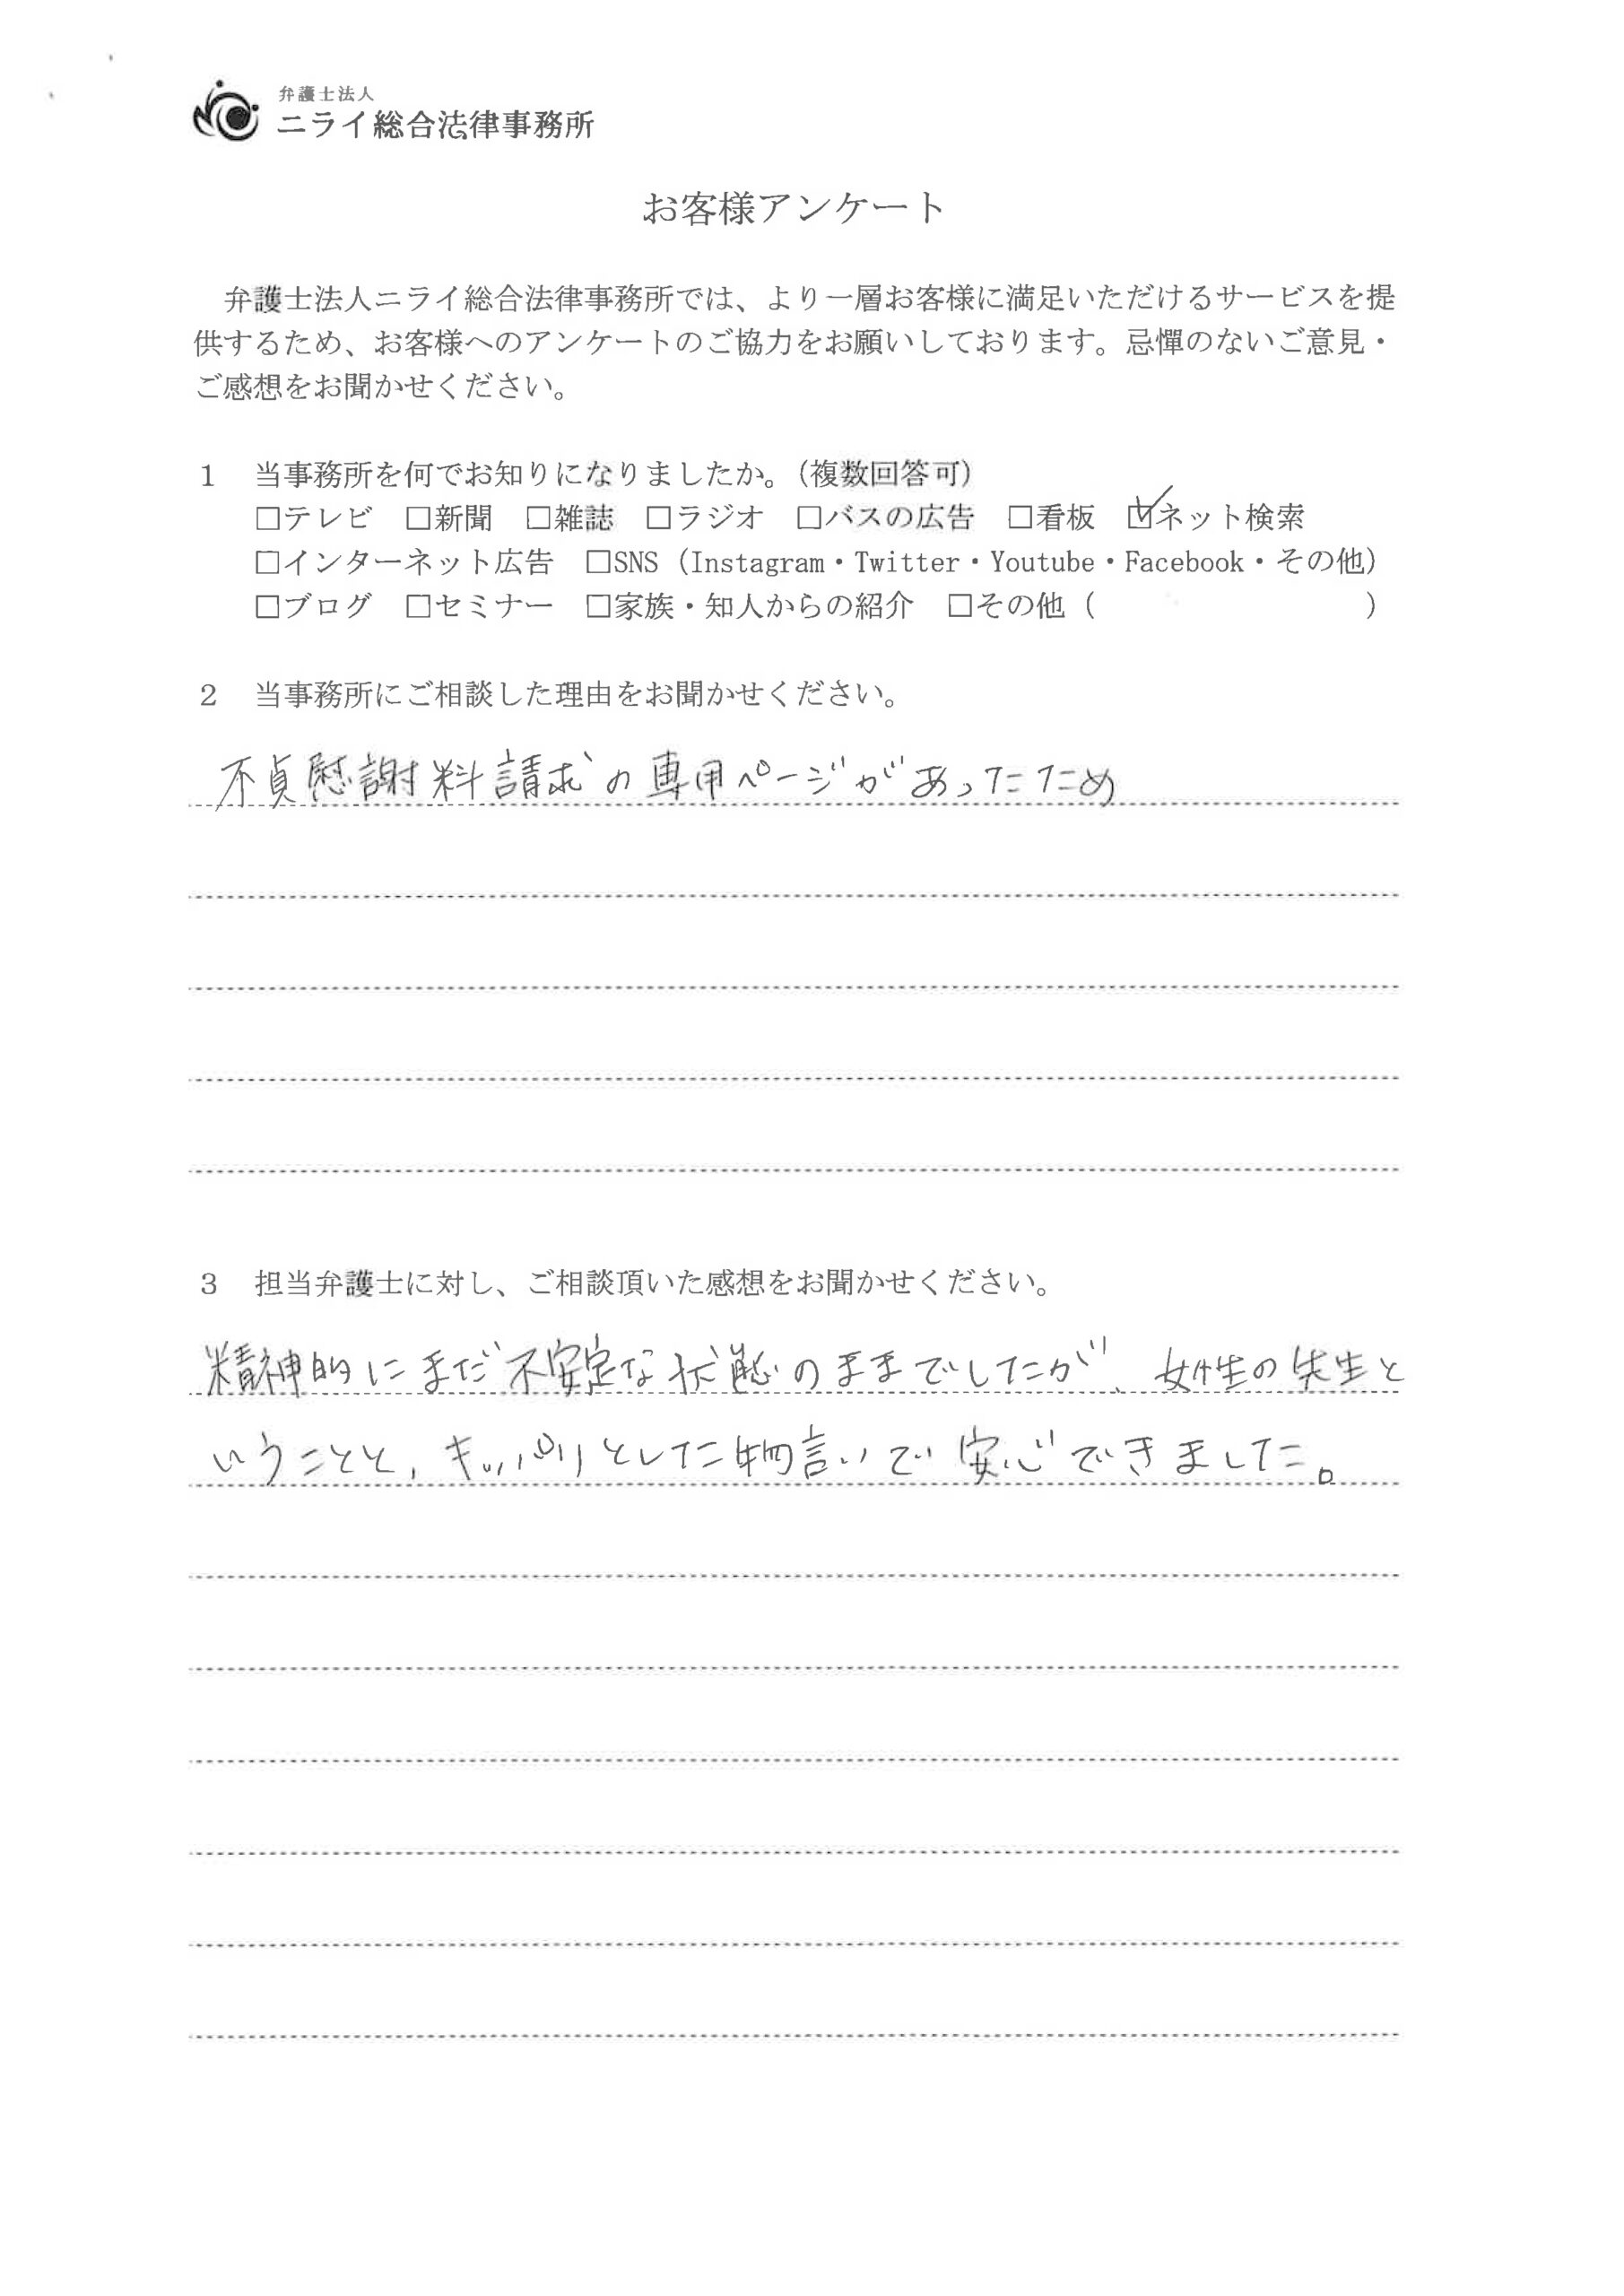 弁護士法人
ニライ総合法律事務所
お客様アンケート
弁護士法人ニライ総合法律事務所では、より一層お客様に満足いただけるサービスを提
供するため、お客様へのアンケートのご協力をお願いしております。忌憚のないご意見・
ご感想をお聞かせください。
1 当事務所を何でお知りになりましたか。（複数回答可）
□テレビ □新聞 □雑誌 □ラジオ □バスの広告 □看板 ☑ネット検索
□インターネット広告 □SNS（Instagram・Twitter・Youtube・Facebook・その他）
□ブログ □セミナー □家族・知人からの紹介 □その他（ ）
2 当事務所にご相談した理由をお聞かせください。
不貞慰謝料請求の専用ページがあったため
3 担当弁護士に対し、ご相談頂いた感想をお聞かせください。
精神的にまだ不安定な状態のままでしたが、女性の先生と
いうことと、キッパリとした物言いで安心できました。